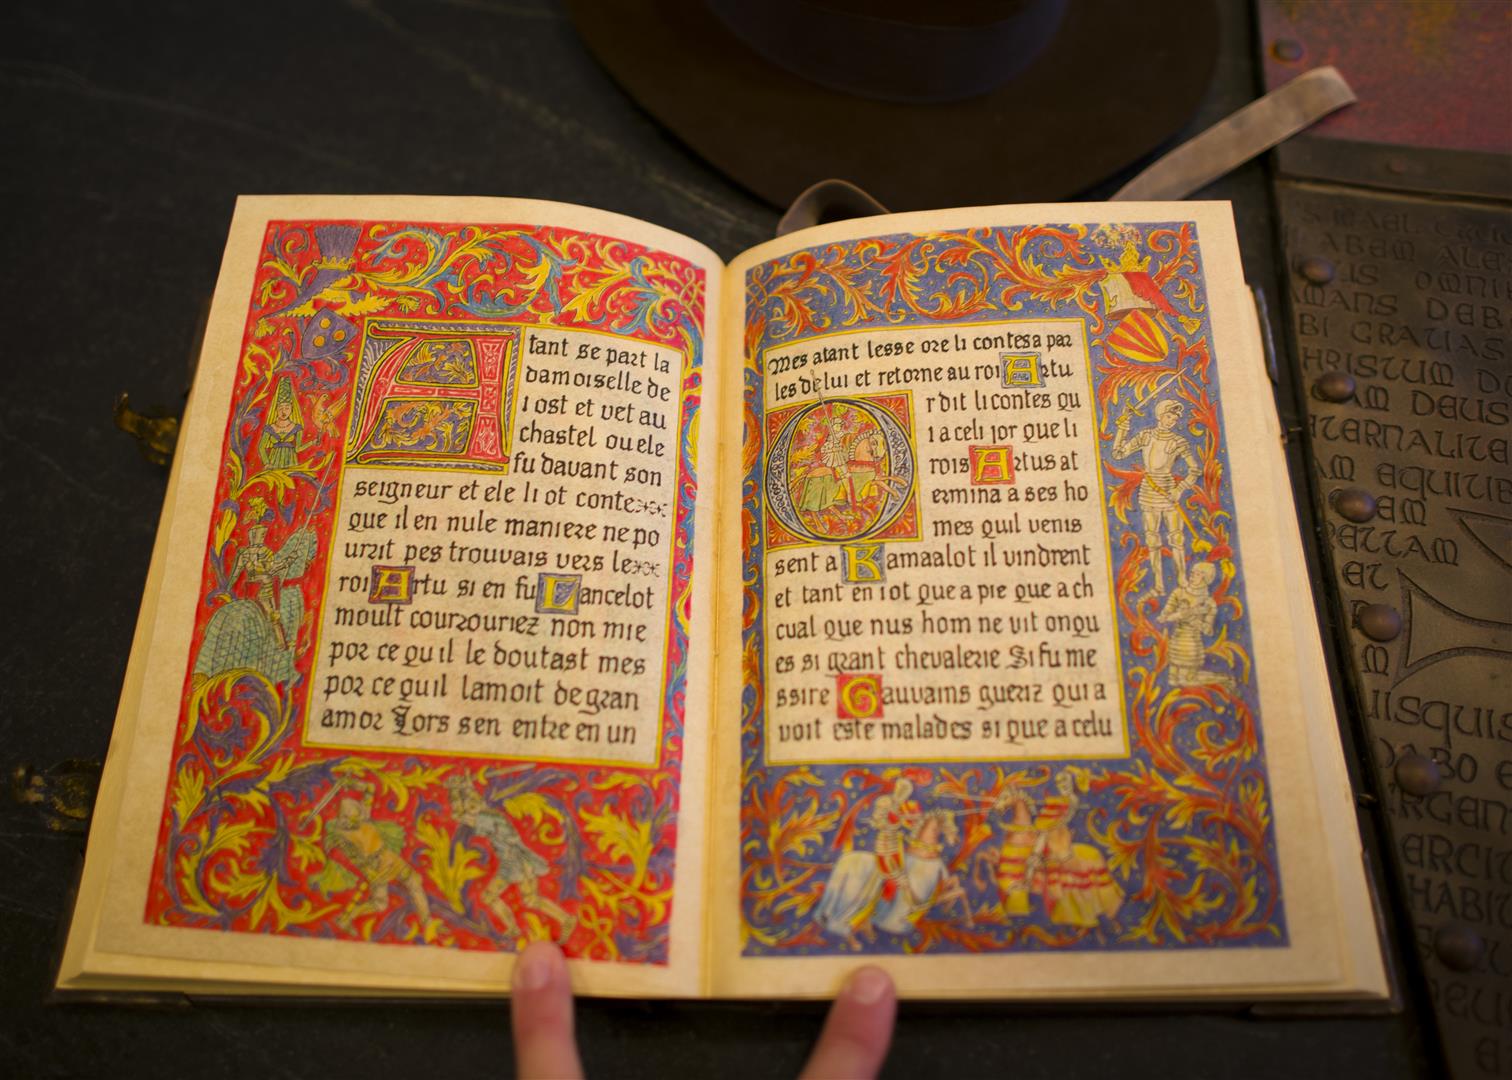 Atant se part la
damoiselle de
lost et vet au
chastel ou ele
fu davant son
seigneur et ele li ot conte
que il en nule maniere ne po
urrit pes trouvais vers le
roi Artu si en fu Lancelot
moult courrouriez non mie
por ce quil le doutast mes
por ce quil lamoit de gran
amor Lors sen entre en un
Mes atant lesse ore li contes a par
les de lui et retorne au roi Artu
Or dit li contes qu
i a celi jor que li
rois Artus at
ermina a ses ho
mes quil venis
sent a Kamaalot il vindrent
et tant en i ot que a pie que a ch
cual que nus hom ne vit onqu
es si grant chevalerie Si fu me
ssire Gauvains gueriz qui a
voit este malades si que a celu
ABEM ALE
OMNI
MANS DEB
BI GRATIAS
HRISTUM D
AM DEUS
TERNALITE
AM EQUITER
EM
ET
M
UISQUIS
DABO E
ARGEN
ERCI
HABI